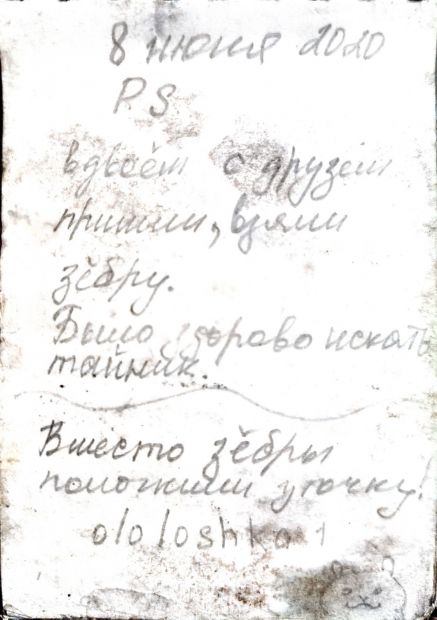 8 июня 2020
P.S
вдвоём с друзем
пришли, взяли
зёбру.
Было здорово искать
тайник.
Вместо зёбры
положили уточку!
ololoshka 1